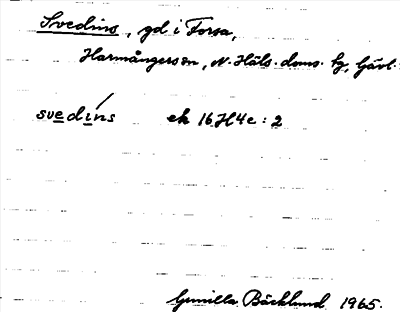 Svedins, gd i Forsa,
Harmångers sn, N. Häls. doms. hg, Gävl.
svedins ek 16H4e:2
Gunilla Bäcklund 1965.